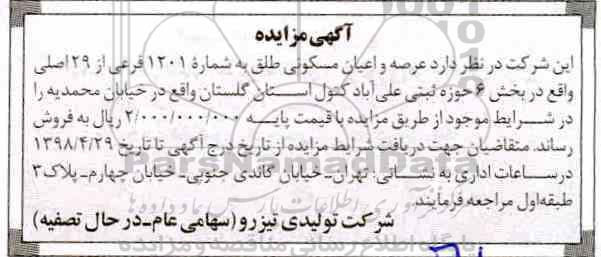 آگهی مزایده
این شرکت در نظر دارد عرصه و اعیان مسکونی طلق به شمارهٔ ۱۲۰۱ فرعی از ۲۹ اصلی
واقع در بخش ۶ حوزه ثبتی علی‌آباد کتول استان گلستان واقع در خیابان محمدیه را
در شرایط موجود از طریق مزایده با قیمت پایه ۲/۰۰۰/۰۰۰/۰۰۰ ریال به فروش
رساند. متقاضیان جهت دریافت شرایط مزایده از تاریخ درج آگهی تا تاریخ ۱۳۹۸/۴/۲۹
درساعات اداری به نشانی: تهران-خیابان گاندی جنوبی-خیابان چهارم-پلاک۳
طبقه‌اول مراجعه فرمایند.
شرکت تولیدی تیزرو (سهامی عام-در حال تصفیه)
ParsNamadData
پایگاه اطلاع رسانی مناقصه و مزایده